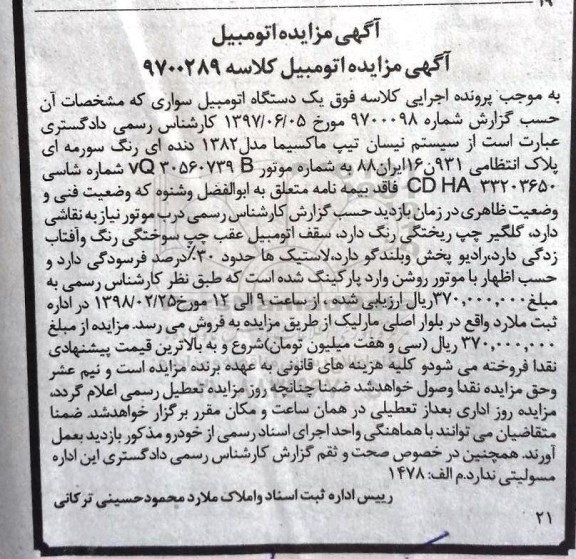 ۱۹
آگهی مزایده اتومبیل
آگهی مزایده اتومبیل کلاسه ۹۷۰۰۲۸۹
به موجب پرونده اجرایی کلاسه فوق یک دستگاه اتومبیل سواری که مشخصات آن
حسب گزارش شماره ۹۷۰۰۰۹۸ مورخ ۱۳۹۷/۰۶/۰۵ کارشناس رسمی دادگستری
عبارت است از سیستم نیسان تیپ ماکسیما مدل۱۳۸۲ دنده ای رنگ سورمه ای
پلاک انتظامی ۹۳۱ن۱۶ایران۸۸ به شماره موتور vQ ۳۰۵۶۰۷۳۹ B شماره شاسی
CD HA ۳۳۲۰۳۶۵۰ فاقد بیمه نامه متعلق به ابوالفضل وشنوه که وضعیت فنی و
وضعیت ظاهری در زمان بازدید حسب گزارش کارشناس رسمی درب موتور نیاز به نقاشی
دارد، گلگیر چپ ریختگی رنگ دارد، سقف اتومبیل عقب چپ سوختگی رنگ وآفتاب
زدگی دارد،رادیو پخش وبلندگو دارد،لاستیک ها حدود ۳۰٪درصد فرسودگی دارد و
حسب اظهار با موتور روشن وارد پارکینگ شده است که طبق نظر کارشناس رسمی به
مبلغ۳۷۰,۰۰۰,۰۰۰ریال ارزیابی شده ، از ساعت ۹ الی ۱۲ مورخ۱۳۹۸/۰۲/۲۵ در اداره
ثبت ملارد واقع در بلوار اصلی مارلیک از طریق مزایده به فروش می رسد. مزایده از مبلغ
۳۷۰,۰۰۰,۰۰۰ ریال (سی و هفت میلیون تومان)شروع و به بالاترین قیمت پیشنهادی
نقدا فروخته می شودو کلیه هزینه های قانونی به عهده برنده مزایده است و نیم عشر
وحق مزایده نقدا وصول خواهدشد ضمنا چنانچه روز مزایده تعطیل رسمی اعلام گردد،
مزایده روز اداری بعداز تعطیلی در همان ساعت و مکان مقرر برگزار خواهدشد. ضمنا
متقاضیان می توانند با هماهنگی واحد اجرای اسناد رسمی از خودرو مذکور بازدید بعمل
آورند. همچنین در خصوص صحت و ثقم گزارش کارشناس رسمی دادگستری این اداره
مسولیتی ندارد.م الف: ۱۴۷۸
رییس اداره ثبت اسناد واملاک ملارد محمودحسینی ترکانی
۲۱